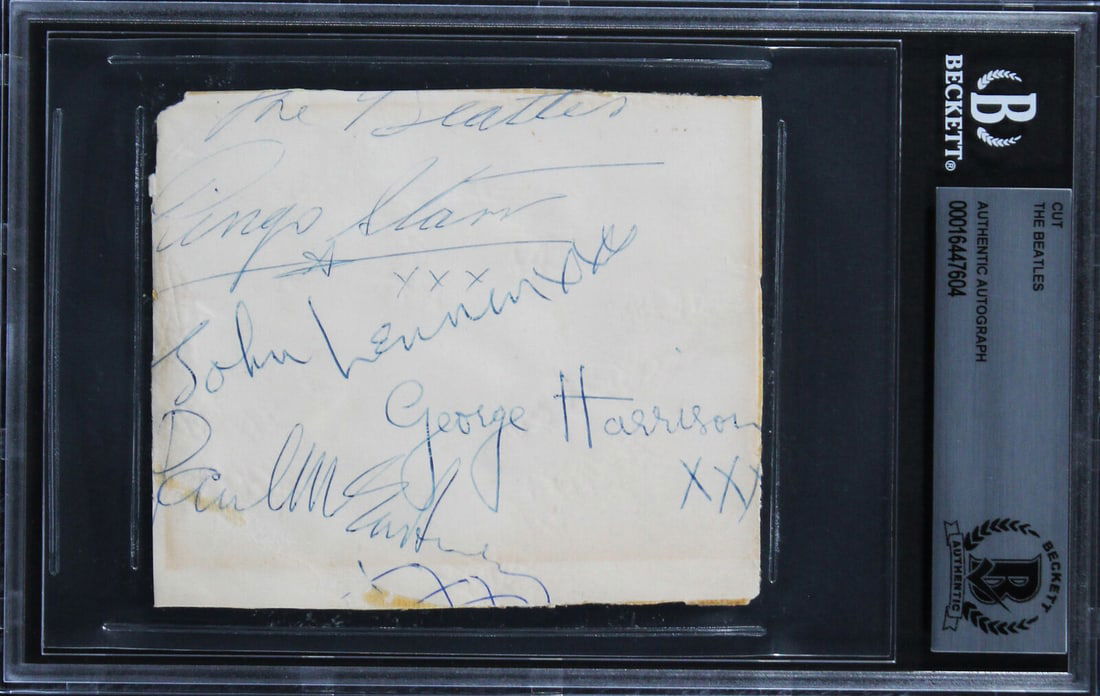 The Beatles
Ringo Starr
xxx
John Lennon xxx
George Harrison
Paul McCartney
XXX
BECKETT®
B
CUT
THE BEATLES
AUTHENTIC AUTOGRAPH
00016447604
BECKETT
B
AUTHENTIC